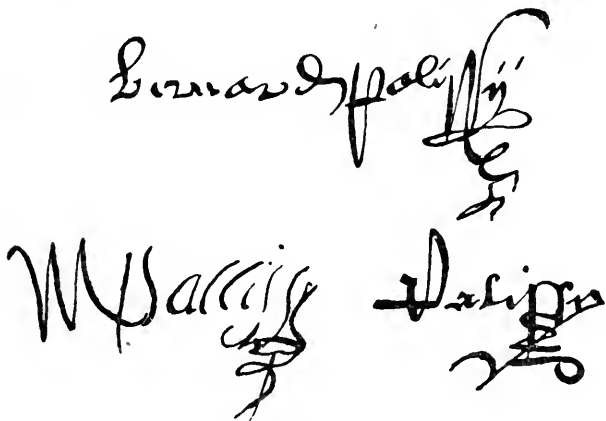 Bernard palissy
M Pallissy
Palissy